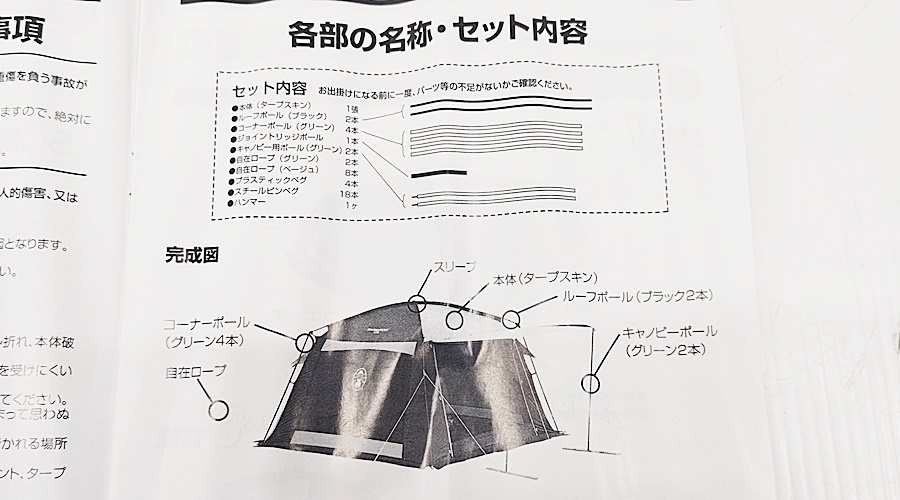 事項
重傷を負う事故が
ますので、絶対に
人的傷害、又は
となります。
い。
折れ、本体破
を受けにくい
てください。
まって思わぬ
かれる場所
ント、タープ
各部の名称・セット内容
セット内容 お出掛けになる前に一度、パーツ等の不足がないかご確認ください。
●本体（タープスキン） 1張
●ルーフポール（ブラック） 2本
●コーナーポール（グリーン） 4本
●ジョイントリッジポール 1本
●キャノピー用ポール（グリーン） 2本
●自在ロープ（グリーン） 2本
●自在ロープ（ベージュ） 8本
●プラスティックペグ 4本
●スチールピンペグ 18本
●ハンマー 1ヶ
完成図
スリーブ
本体（タープスキン）
ルーフポール（ブラック2本）
コーナーポール
（グリーン4本）
キャノピーポール
（グリーン2本）
自在ロープ